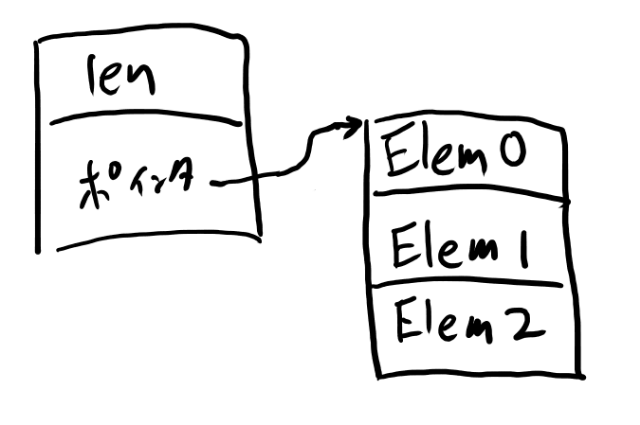 len
ポインタ
Elem 0
Elem 1
Elem 2